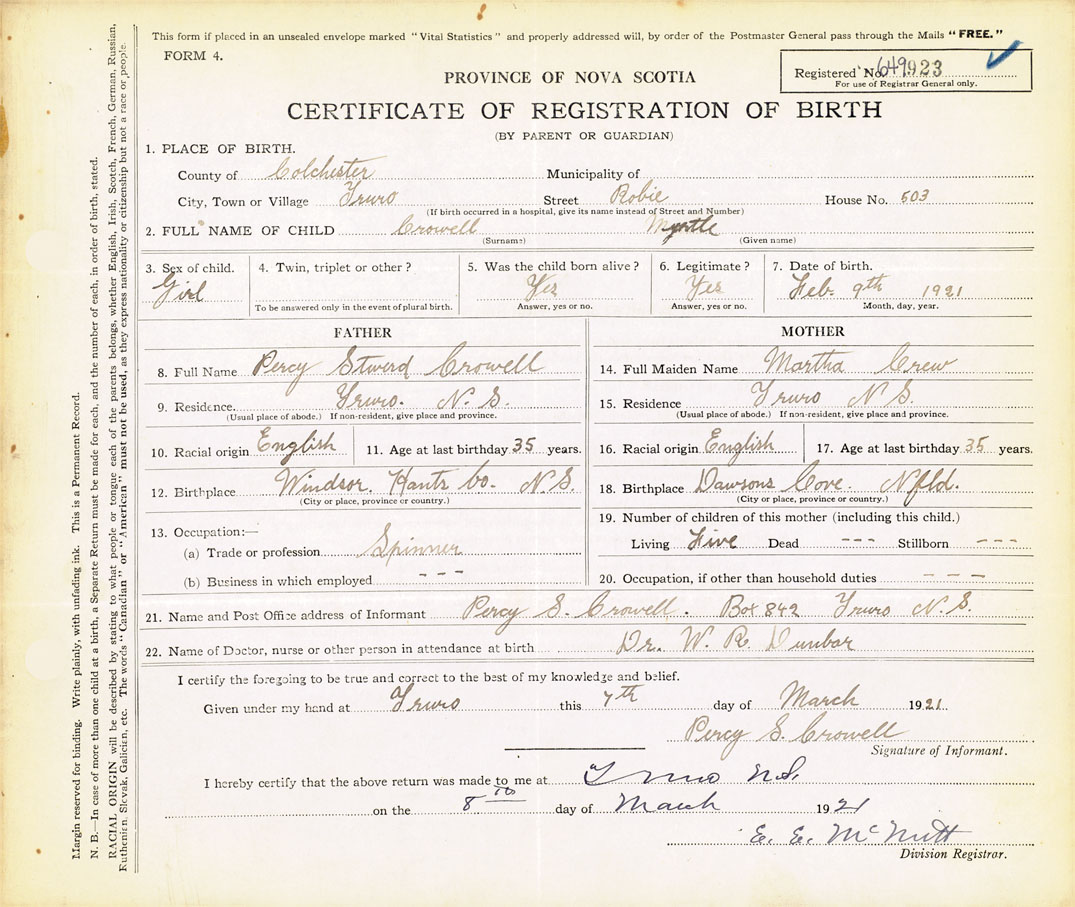 This form if placed in an unsealed envelope marked "Vital Statistics" and properly addressed will, by order of the Postmaster General pass through the Mails "FREE."
FORM 4.
Registered No. 923
For use of Registrar General only.
PROVINCE OF NOVA SCOTIA
CERTIFICATE OF REGISTRATION OF BIRTH
(BY PARENT OR GUARDIAN)
1. PLACE OF BIRTH.
County of Colchester Municipality of
City, Town or Village Truro Street Robie House No. 503
(If birth occurred in a hospital, give its name instead of Street and Number)
2. FULL NAME OF CHILD Crowell Myrtle
(Surname) (Given name)
3. Sex of child. Girl
4. Twin, triplet or other?
To be answered only in the event of plural birth.
5. Was the child born alive? Yes
Answer, yes or no.
6. Legitimate? Yes
Answer, yes or no.
7. Date of birth. Feb. 9th 1921
Month, day, year.
FATHER
8. Full Name Percy Stwerd Crowell
9. Residence. Truro. N. S.
(Usual place of abode.) If non-resident, give place and province.
10. Racial origin English 11. Age at last birthday 35 years.
12. Birthplace Windsor. Hants Co. N. S.
(City or place, province or country.)
13. Occupation:—
(a) Trade or profession Spinner
(b) Business in which employed - - -
MOTHER
14. Full Maiden Name Martha Crew
15. Residence Truro N. S.
(Usual place of abode.) If non-resident, give place and province.
16. Racial origin English 17. Age at last birthday 35 years.
18. Birthplace Dawsons Cove. Nfld.
(City or place, province or country.)
19. Number of children of this mother (including this child.)
Living Five Dead - - - Stillborn - - -
20. Occupation, if other than household duties - - -
21. Name and Post Office address of Informant Percy S. Crowell. Box 842 Truro N. S.
22. Name of Doctor, nurse or other person in attendance at birth Dr. W. R. Dunbar
I certify the foregoing to be true and correct to the best of my knowledge and belief.
Given under my hand at Truro this 7th day of March 1921.
Percy S. Crowell
Signature of Informant.
I hereby certify that the above return was made to me at Truro N.S.
on the 8th day of March 1921
E. E. McNutt
Division Registrar.
Margin reserved for binding. Write plainly, with unfading ink. This is a Permanent Record.
N. B.—In case of more than one child at a birth, a Separate Return must be made for each, and the number of each, in order of birth, stated.
RACIAL ORIGIN will be described by stating to what people or tongue each of the parents belongs, whether English, Irish, Scotch, French, German, Russian,
Ruthenian, Slovak, Galician, etc. The words "Canadian" or "American" must not be used, as they express nationality or citizenship but not a race or people.